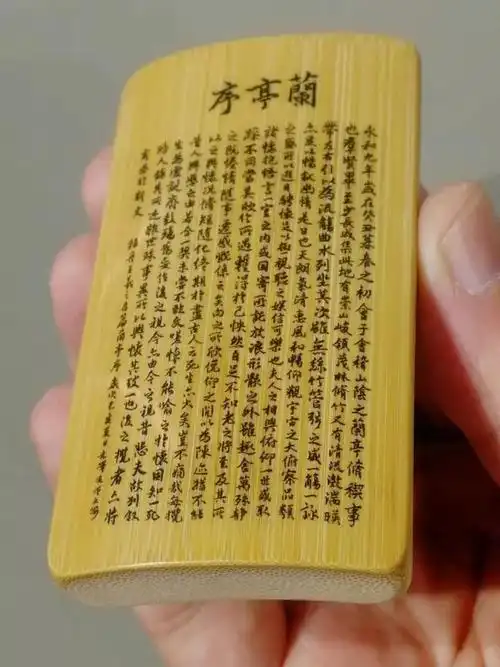 蘭亭序
永和九年歲在癸丑暮春之初會于會稽山陰之蘭亭脩稧事
也群賢畢至少長咸集此地有崇山峻領茂林脩竹又有清流激湍暎
帶左右引以為流觴曲水列坐其次雖無絲竹管弦之盛一觴一詠
亦足以暢敘幽情是日也天朗氣清惠風和暢仰觀宇宙之大俯察品類
之盛所以遊目騁懷足以極視聽之娛信可樂也夫人之相與俯仰一世或取
諸懷抱悟言一室之內或因寄所託放浪形骸之外雖趣舍萬殊靜
躁不同當其欣於所遇暫得於己怏然自足不知老之將至及其所
之既惓情隨事遷感慨係之矣向之所欣俛仰之間以為陳迹猶不能
以之興懷況脩短隨化終期於盡古人云死生亦大矣豈不痛哉每攬
昔人興感之由若合一契未嘗不臨文嗟悼不能喻之於懷固知一死
生為虛誕齊彭殤為妄作後之視今亦由今之視昔悲夫故列敘
時人錄其所述雖世殊事異所以興懷其致一也後之攬者亦將
有感於斯文 王羲之 蘭亭序 歲次